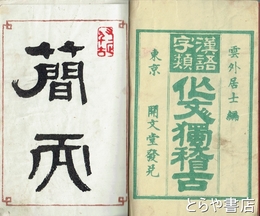 雲外居士編
漢語
字類
作文獨稽古
東京
開文堂發兌
簡
而
とらや書店